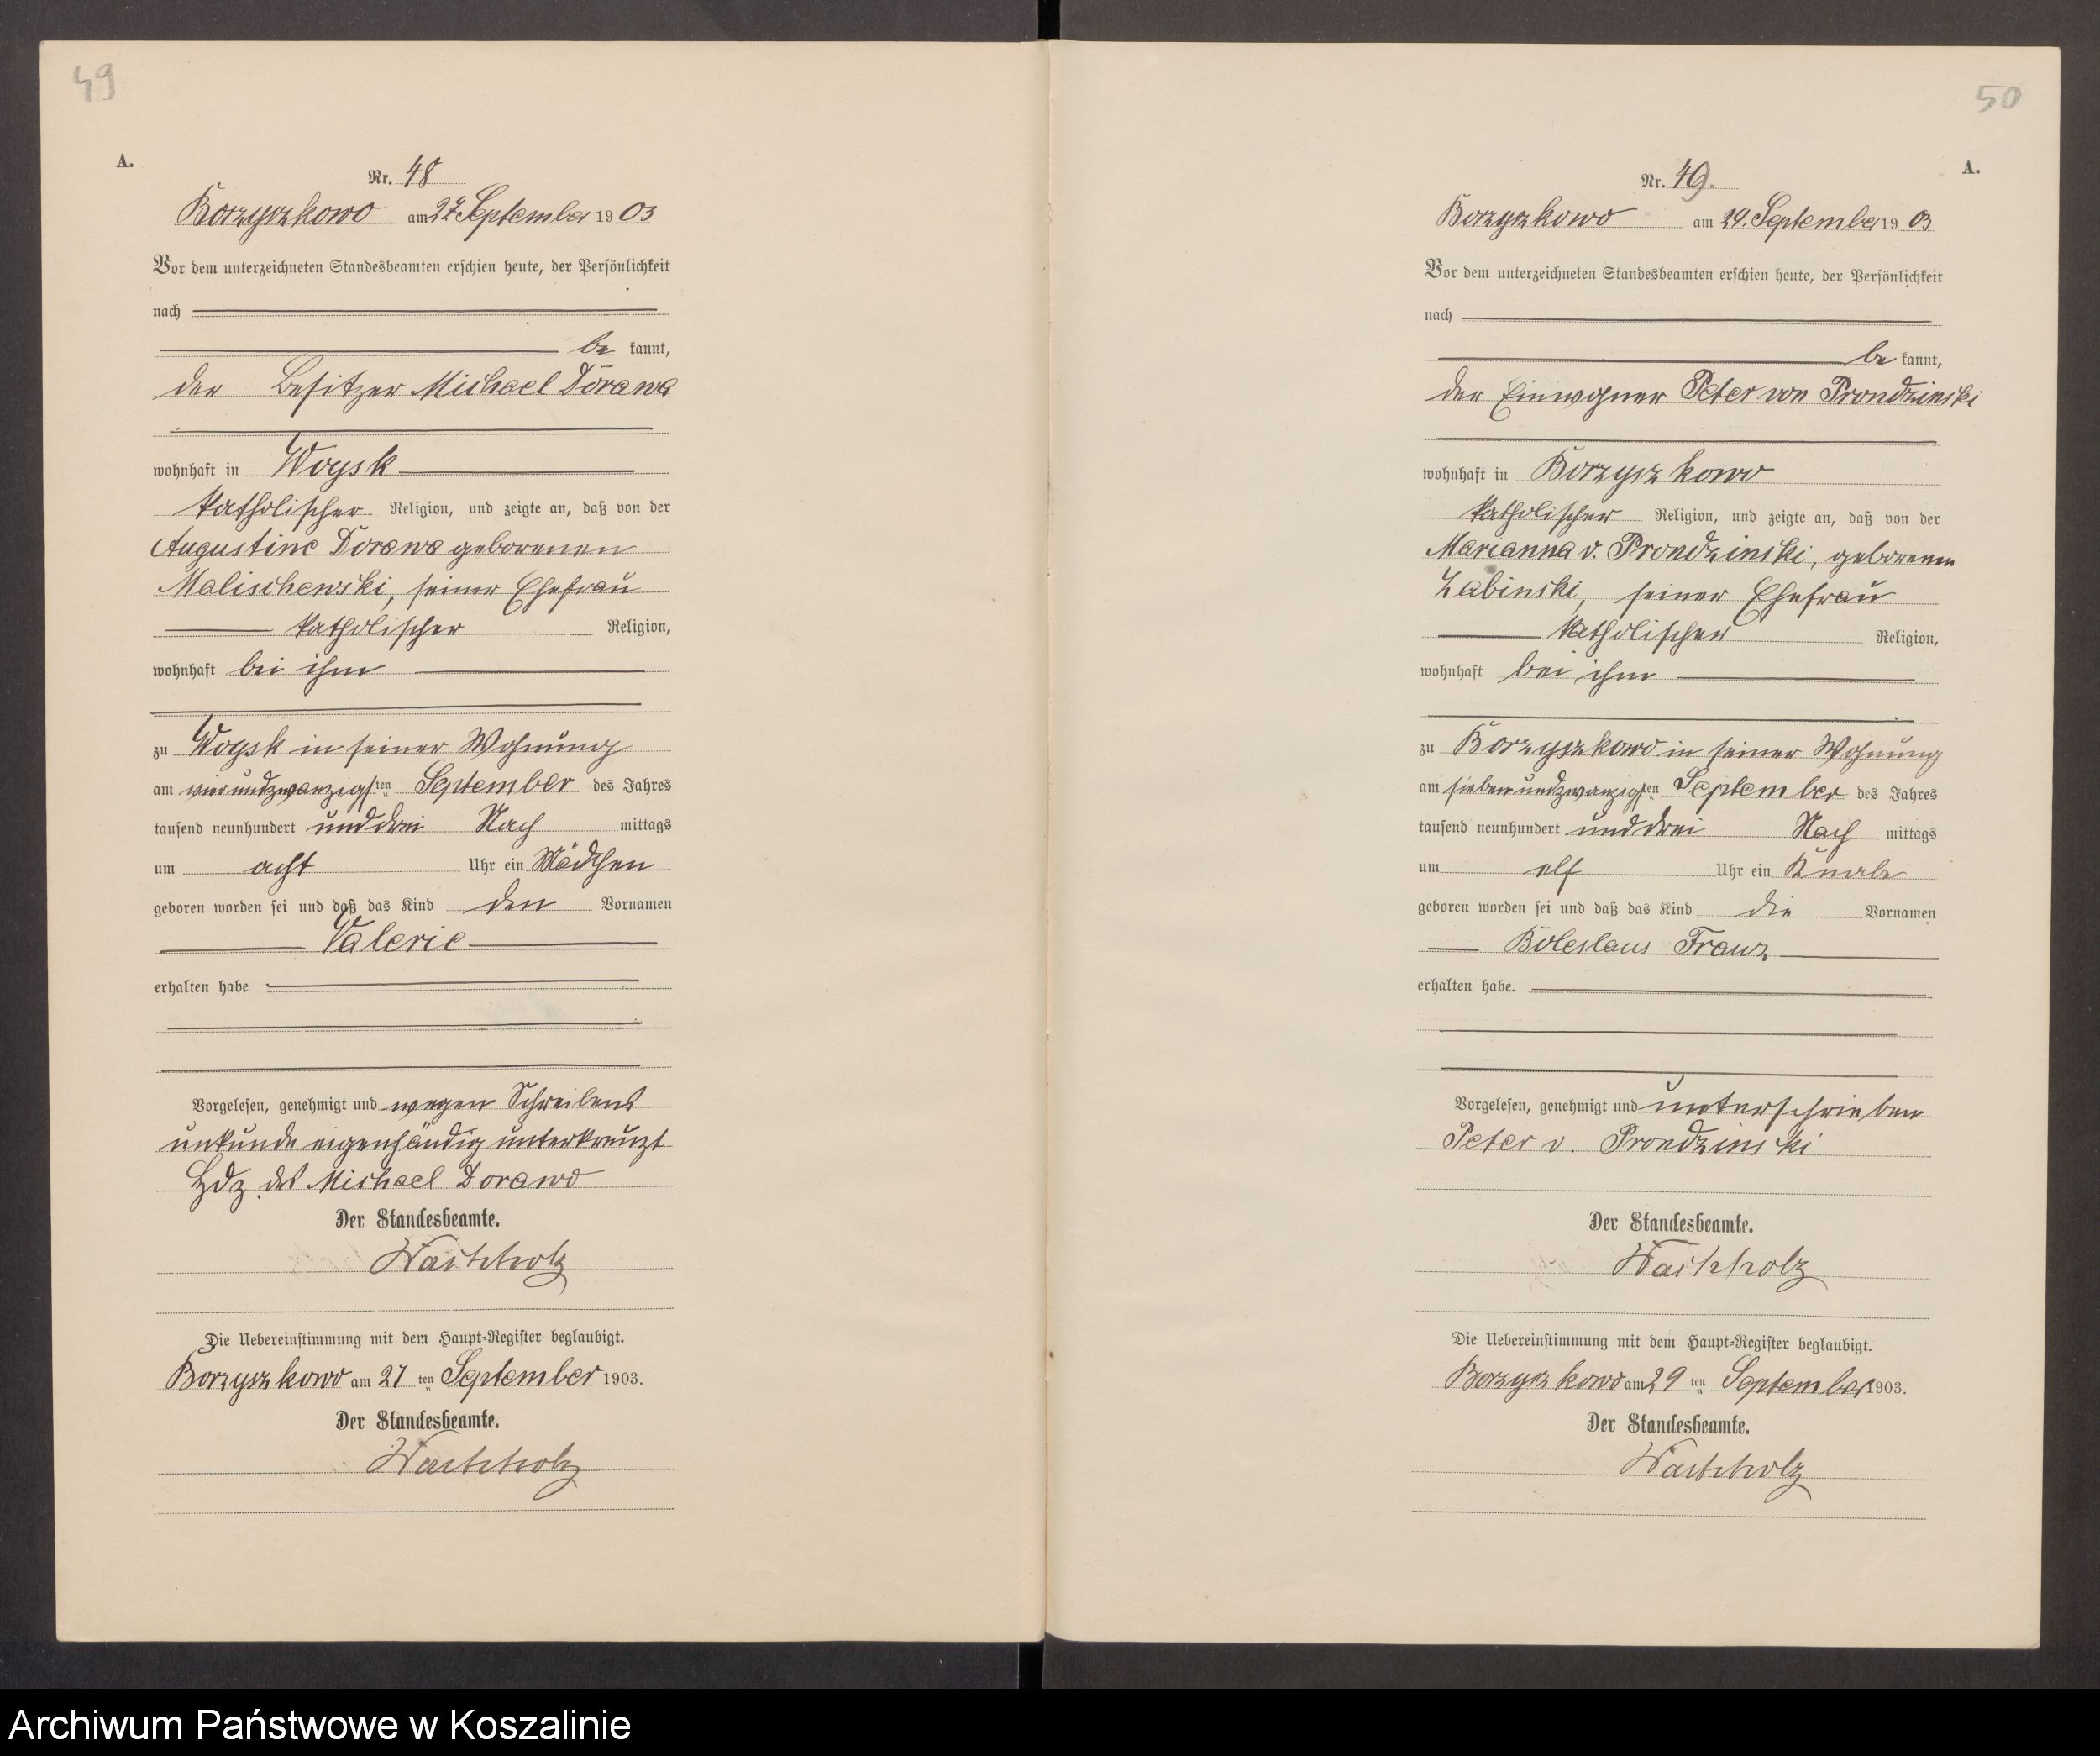 49
A.
Nr. 48
Borzyszkowo am 27. September 1903
Vor dem unterzeichneten Standesbeamten erschien heute, der Persönlichkeit
nach
be kannt,
der Besitzer Michael Dorawa
wohnhaft in Woysk
katholischer Religion, und zeigte an, daß von der
Augustine Dorawa geborenen
Malischewski, seiner Ehefrau
katholischer Religion,
wohnhaft bei ihm
zu Woysk in seiner Wohnung
am vierundzwanzigsten September des Jahres
tausend neunhundert und drei Nach mittags
um acht Uhr ein Mädchen
geboren worden sei und daß das Kind den Vornamen
Valerie
erhalten habe
Vorgelesen, genehmigt und wegen Schreibens
unkunde eigenhändig unterkreuzt
Hdz. des Michael Dorawa
Der Standesbeamte.
Wachholz
Die Uebereinstimmung mit dem Haupt-Register beglaubigt.
Borzyszkowo am 27 ten September 1903.
Der Standesbeamte.
Wachholz
50
A.
Nr. 49.
Borzyszkowo am 29. September 1903
Vor dem unterzeichneten Standesbeamten erschien heute, der Persönlichkeit
nach
be kannt,
der Einwohner Peter von Prondzinski
wohnhaft in Borzyszkowo
katholischer Religion, und zeigte an, daß von der
Marianna v. Prondzinski, geborenen
Zabinski, seiner Ehefrau
katholischer Religion,
wohnhaft bei ihm
zu Borzyszkowo in seiner Wohnung
am siebenundzwanzigsten September des Jahres
tausend neunhundert und drei Nach mittags
um elf Uhr ein Knabe
geboren worden sei und daß das Kind die Vornamen
Boleslaus Franz
erhalten habe.
Vorgelesen, genehmigt und unterschrieben
Peter v. Prondzinski
Der Standesbeamte.
Wachholz
Die Uebereinstimmung mit dem Haupt-Register beglaubigt.
Borzyszkowo am 29 ten September 1903.
Der Standesbeamte.
Wachholz
Archiwum Państwowe w Koszalinie